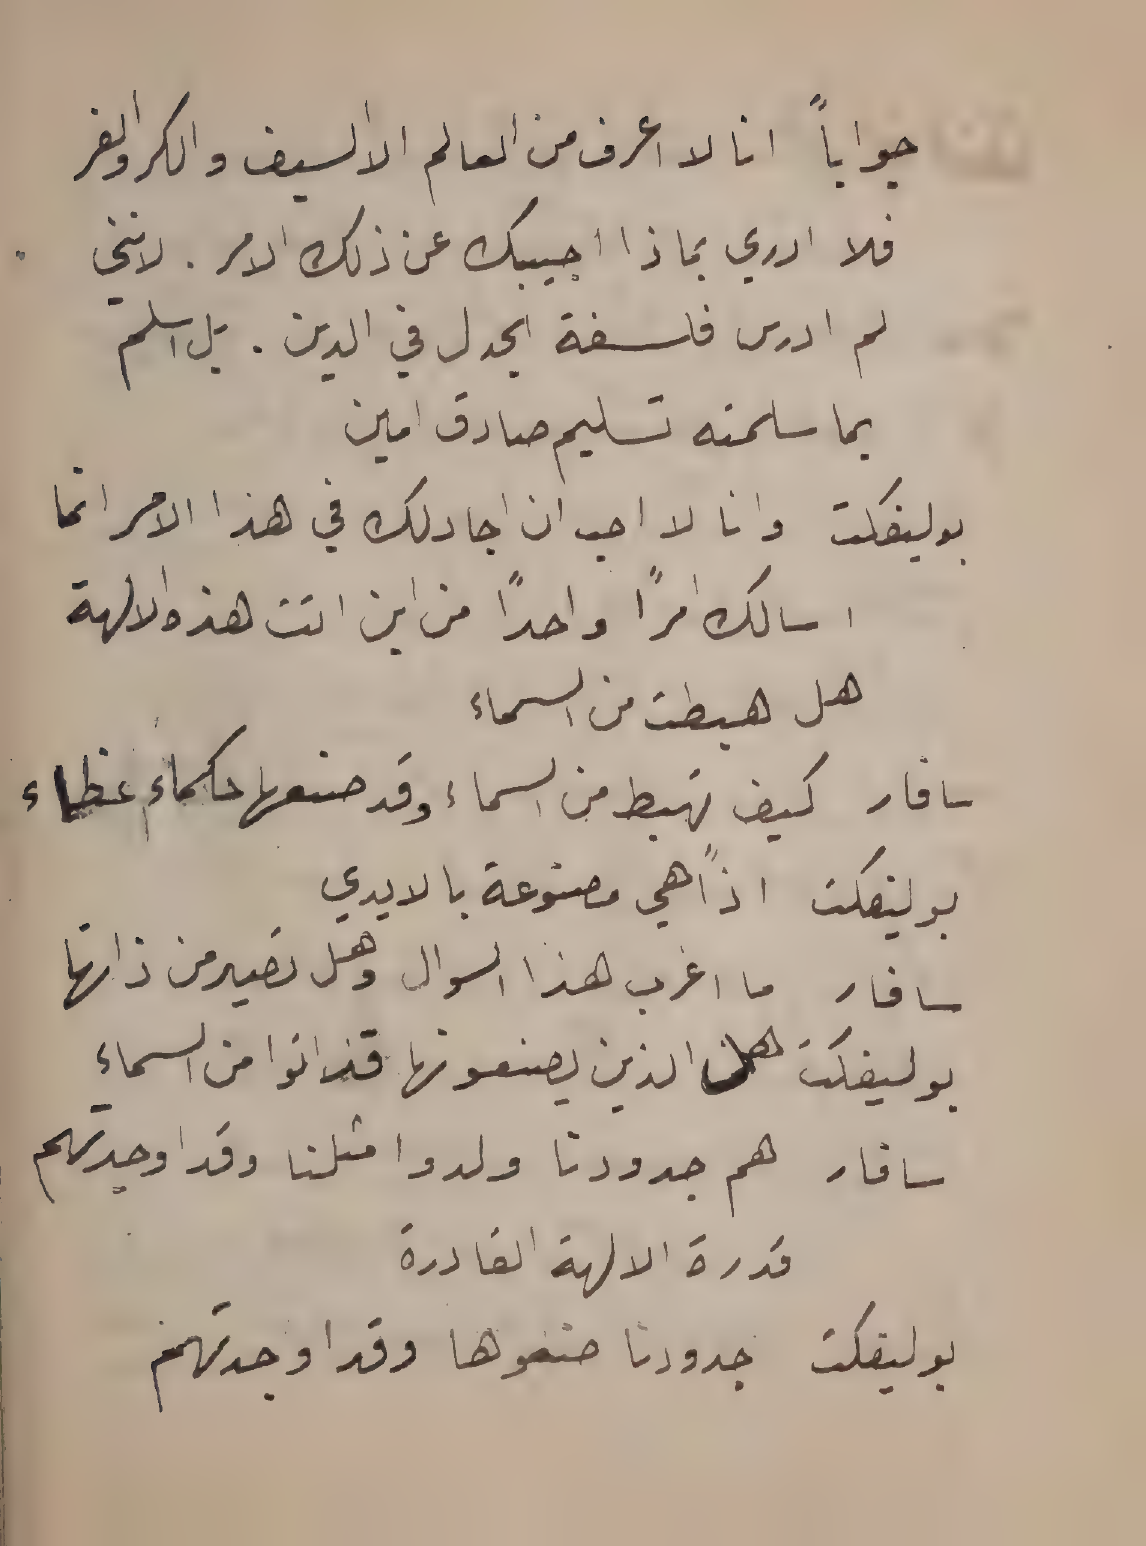 جواباً انا لا اعرف من العالم الا السيف والكر والفر
فلا ادري بماذا اجيبك عن ذلك الامر . لانني
لم ادرس فلسفة الجدل في الدين . بل اسلم
بما سلمته تسليم صادق امين
بوليفكت وانا لا احب ان اجادلك في هذا الامر انما
اسالك امرًا واحدًا من اين اتت هذه الالهة
هل هبطت من السماء
سافار كيف تهبط من السماء وقد صنعها حكماء عظماء
بوليفكت اذاً هي مصنوعة بالايدي
سافار ما اغرب هذا السوال وهل تصير من ذاتها
بوليفكت هل الذين يصنعونها قد اتوا من السماء
سافار هم جدودنا ولدوا مثلنا وقد اوجدتهم
قدرة الالهة القادرة
بوليفكت جدودنا صنعوها وقد اوجدتهم